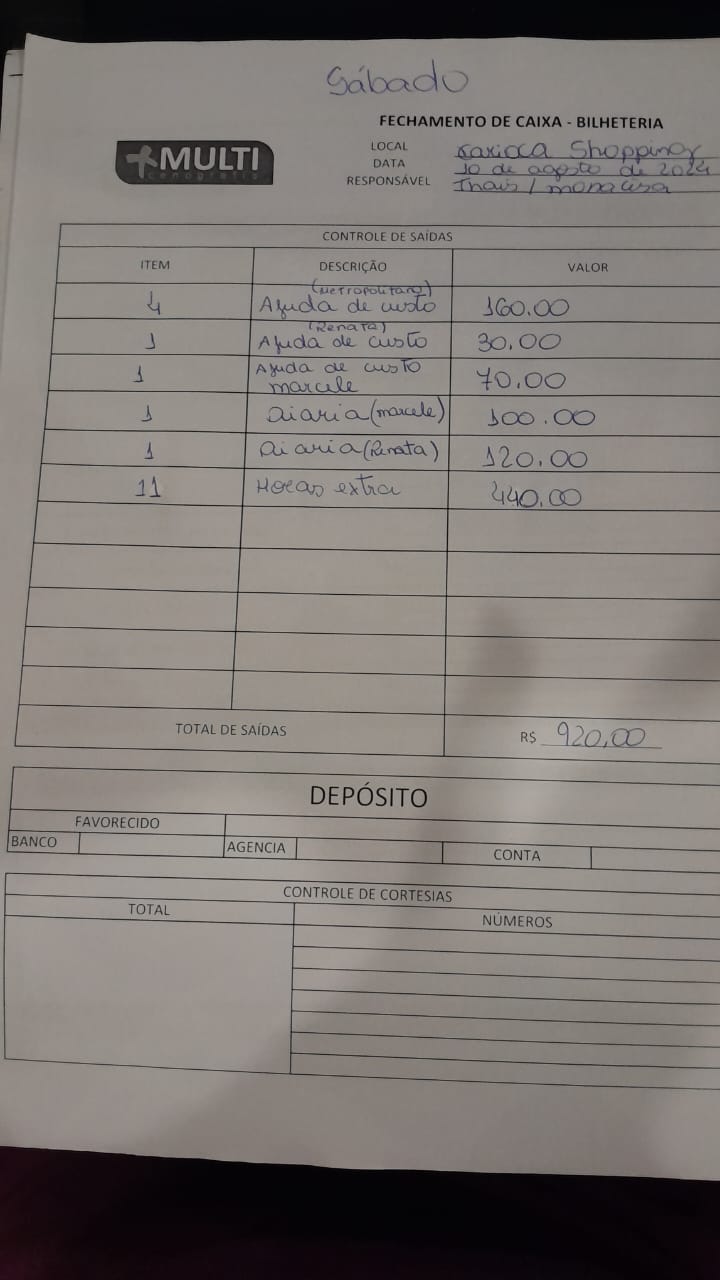 Sábado
FECHAMENTO DE CAIXA - BILHETERIA
+MULTI
cenografia
LOCAL Karioca Shopping
DATA 10 de agosto de 2024
RESPONSÁVEL Thais / monalisa
CONTROLE DE SAÍDAS
ITEM DESCRIÇÃO VALOR
(Metropolitano)
4 Ajuda de custo 160.00
(Renata)
1 Ajuda de custo 30.00
1 Ajuda de custo 70.00
marcele
1 Diaria (marcele) 100.00
1 Diaria (Renata) 120.00
11 Horas extra 440.00
TOTAL DE SAÍDAS R$ 920,00
DEPÓSITO
FAVORECIDO
BANCO AGENCIA CONTA
CONTROLE DE CORTESIAS
TOTAL NÚMEROS